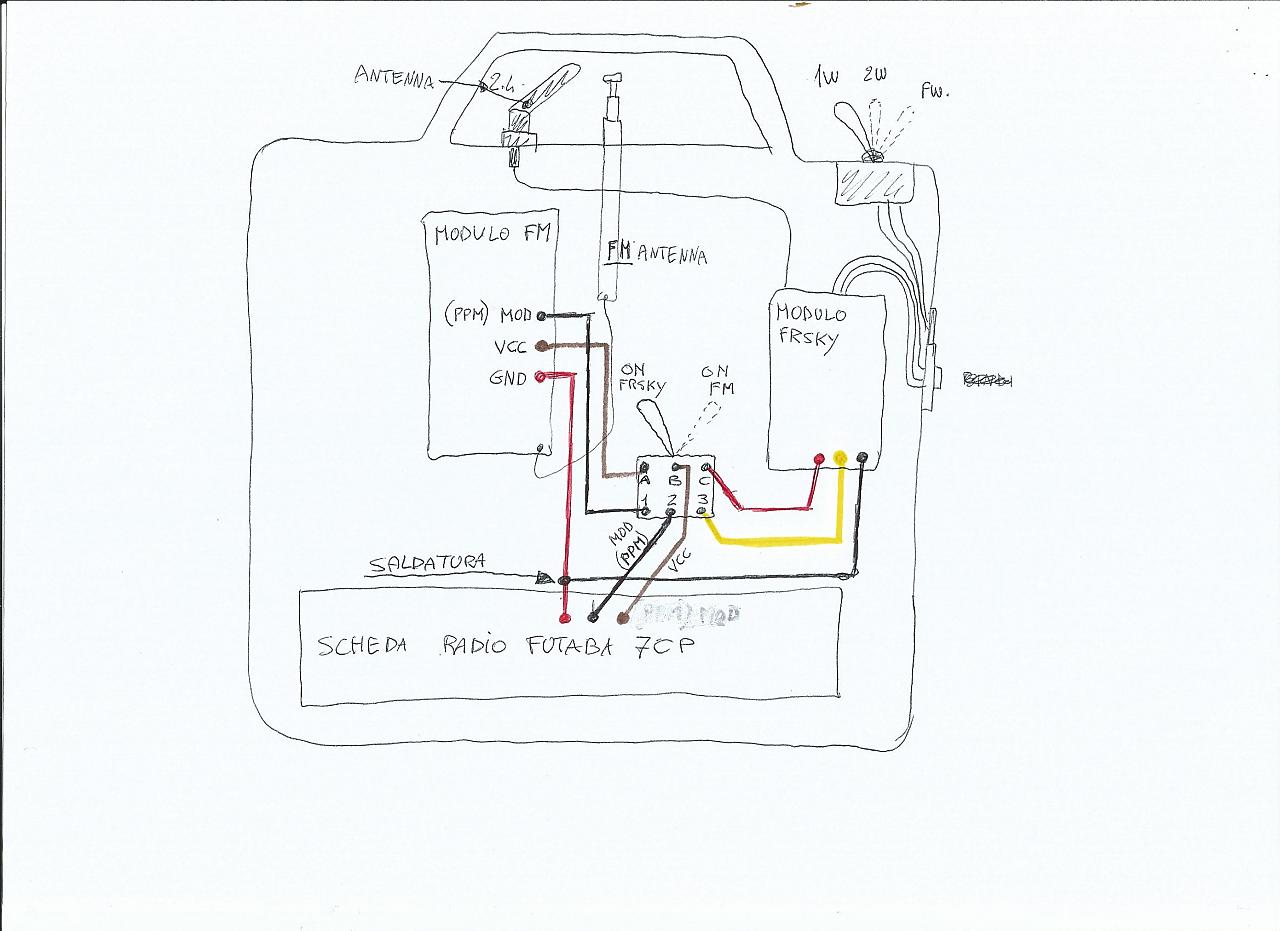 ANTENNA 2.4
1W 2W FW.
MODULO FM
FM ANTENNA
(PPM) MOD
VCC
GND
MODULO
FRSKY
ON
FRSKY
ON
FM
A B C
1 2 3
MOD
(PPM)
VCC
SALDATURA
SCHEDA RADIO FUTABA 7CP